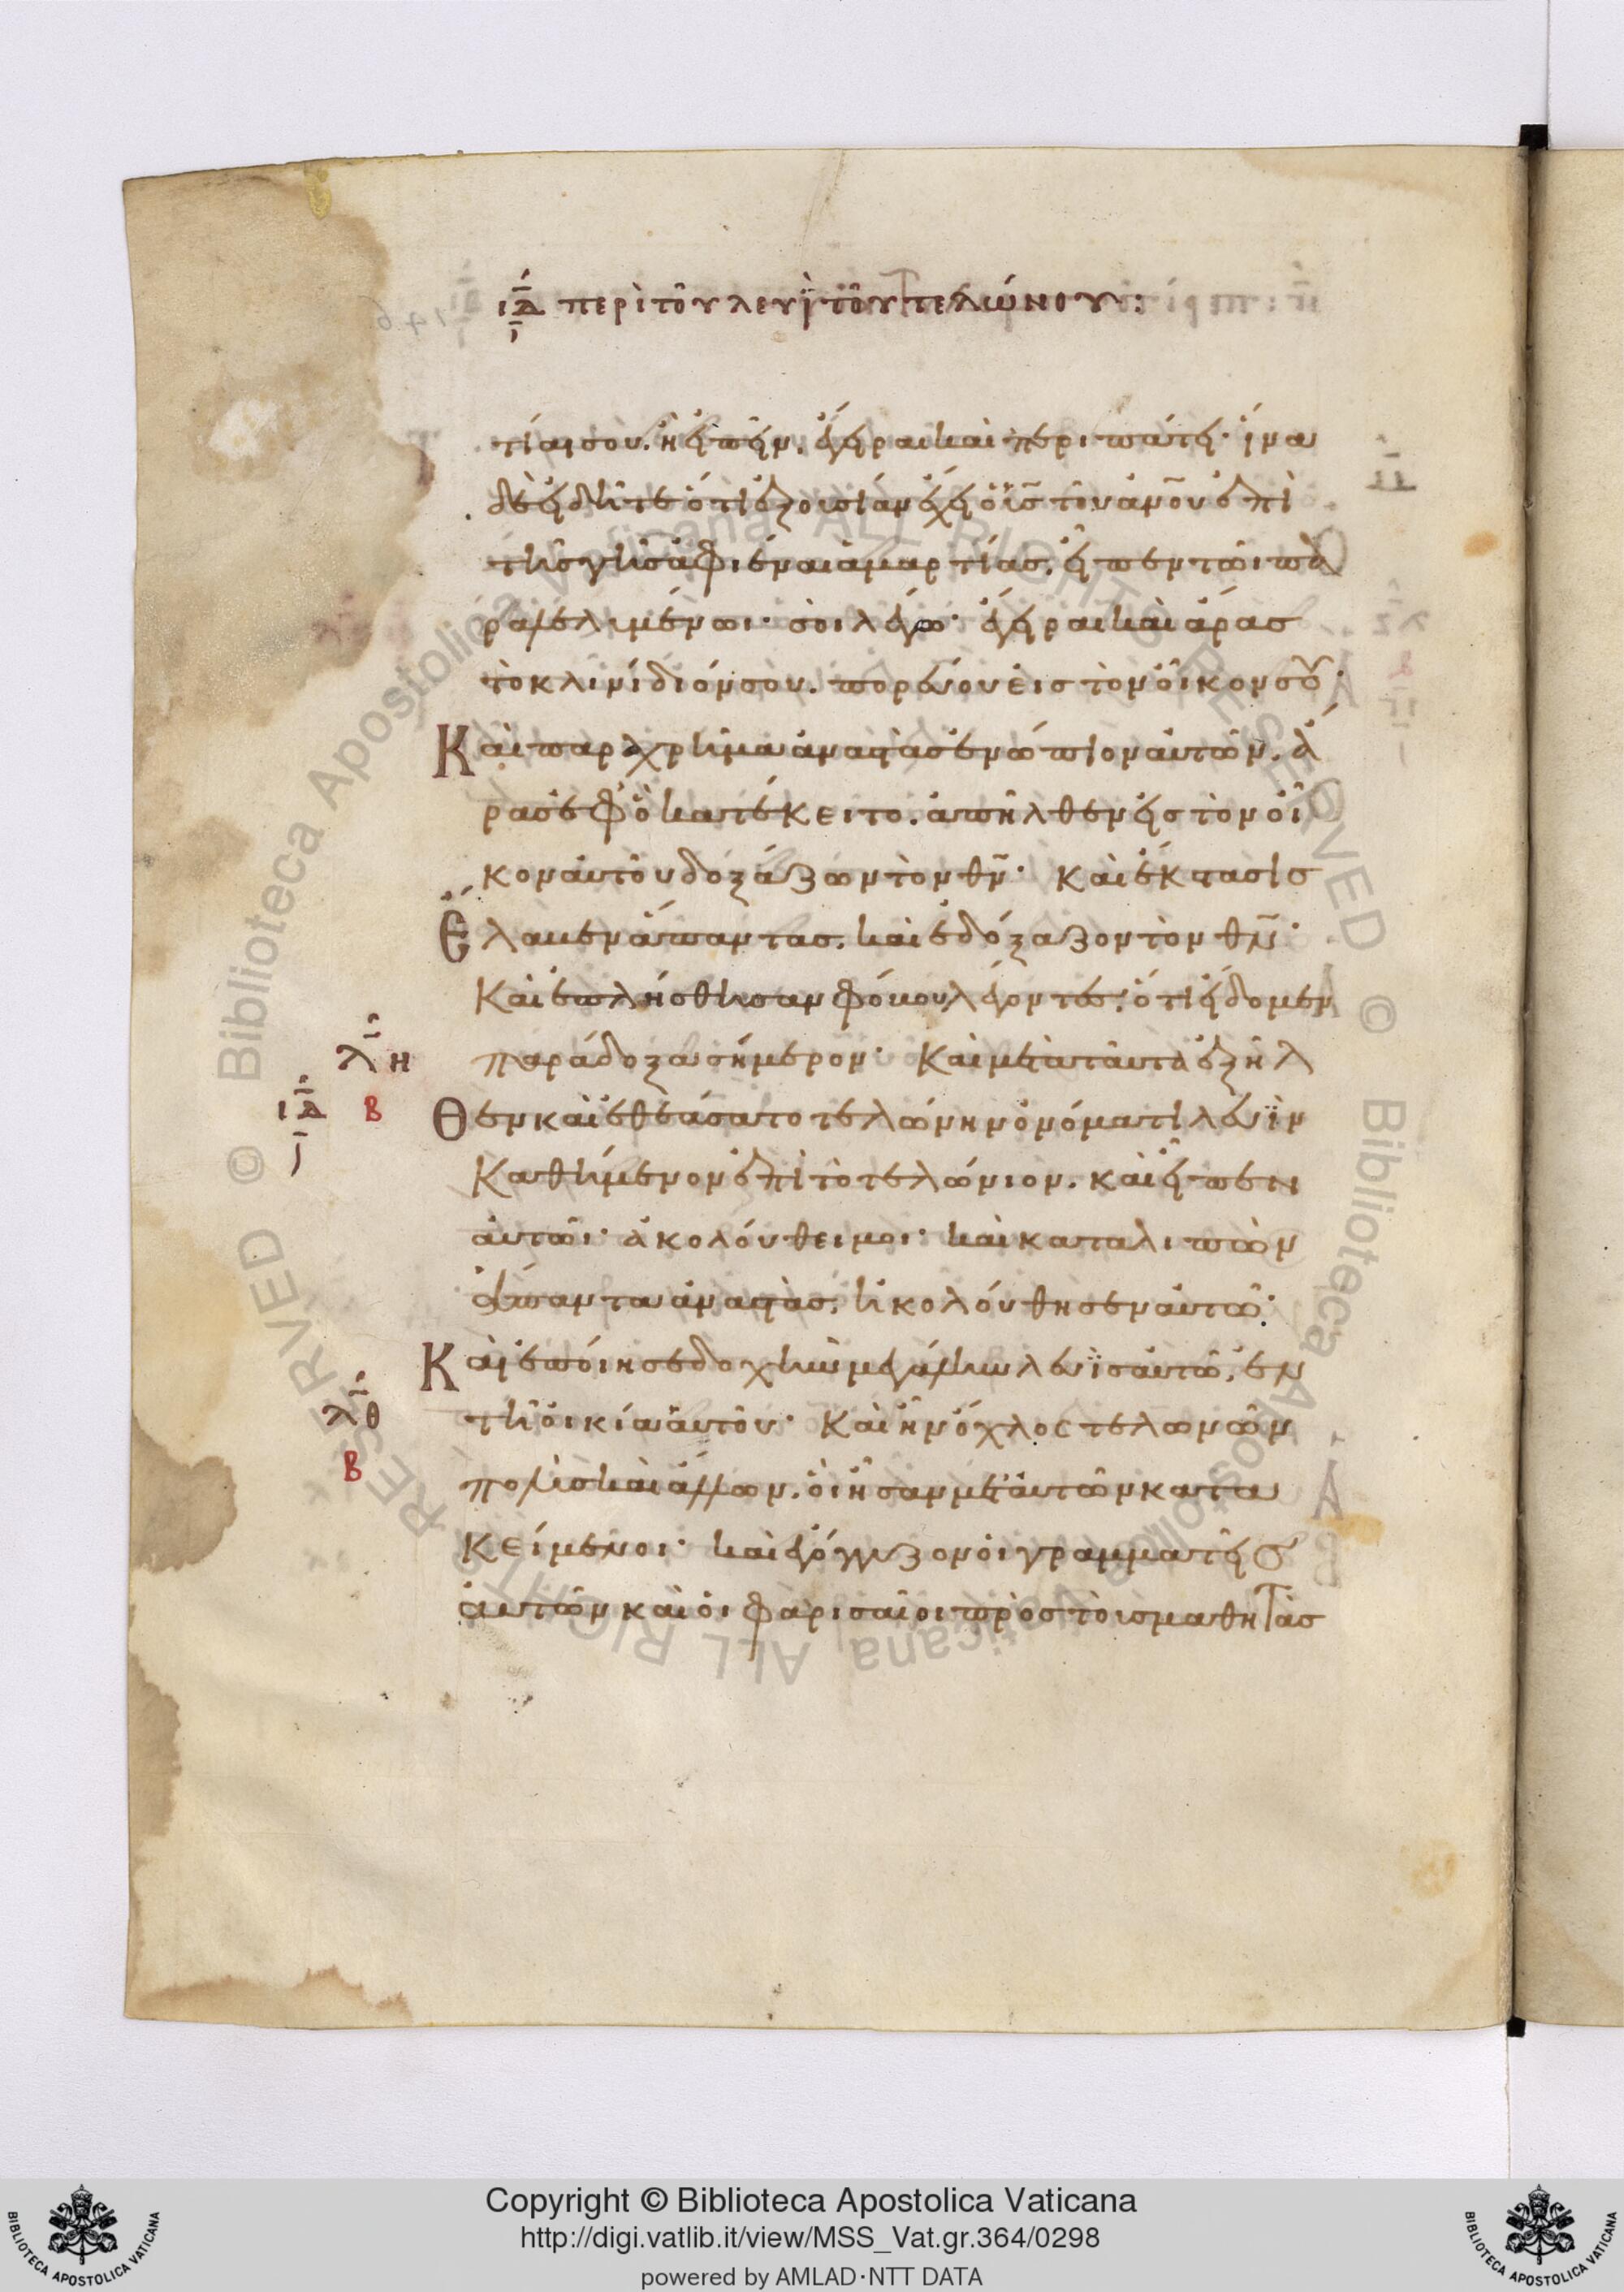 ιδ περὶ τοῦ λευῒ τοῦ τελώνου:
τίαι σου. ἢ εἰπεῖν. ἔγειραι καὶ περιπάτει· ἵνα
δὲ εἰδῆτε ὅτι ἐξουσίαν ἔχει ὁ ϊς τοῦ ἀνου ἐπὶ
τῆς γῆς ἀφιέναι ἁμαρτίας. εἶπεν τῶι πα
ραλελυμένωι· σοὶ λέγω· ἔγειραι καὶ ἄρας
τὸ κλινίδιόν σου. πορεύου εἰς τὸν οἶκον σου·
Καὶ παραχρῆμα ἀναστὰς ἐνώπιον αὐτῶν. ἄ
ρας ἐφ ὃ κατέκειτο. ἀπῆλθεν εἰς τὸν οἶ
κον αὐτοῦ δοξάζων τὸν θν· Καὶ ἔκστασις
Ἔλαβεν ἅπαντας. καὶ ἐδόξαζον τὸν θν·
Καὶ ἐπλήσθησαν φόβου λέγοντες· ὅτι εἴδομεν
παράδοξα σήμερον· Καὶ μετὰ ταῦτα ἐξῆλ
λη
ιδ β
Θεν καὶ ἐθεάσατο τελώνην ὀνόματι λευῒν
Καθήμενον ἐπὶ τὸ τελώνιον. καὶ εἶπεν
αὐτῶι· ἀκολούθει μοι· καὶ καταλιπὼν
ἅπαντα ἀναστὰς. ἠκολούθησεν αὐτῶ·
Καὶ ἐποίησε δοχὴν μεγάλην λευῒς αὐτῶ. ἐν
λθ
τῆ οἰκία αὐτοῦ· Καὶ ἦν ὄχλος τελωνῶν
β
πολὺς καὶ ἄλλων. οἳ ἦσαν μετ αὐτῶν κατα
Κείμενοι· καὶ ἐγόγγυζον οἱ γραμματεῖς
αὐτῶν καὶ οἱ φαρισαῖοι πρὸς τοὺς μαθητὰς
Copyright © Biblioteca Apostolica Vaticana
http://digi.vatlib.it/view/MSS_Vat.gr.364/0298
powered by AMLAD·NTT DATA
BIBLIOTECA APOSTOLICA VATICANA
BIBLIOTECA APOSTOLICA VATICANA
© Biblioteca Apostolica Vaticana ALL RIGHTS RESERVED
© Biblioteca Apostolica Vaticana ALL RIGHTS RESERVED